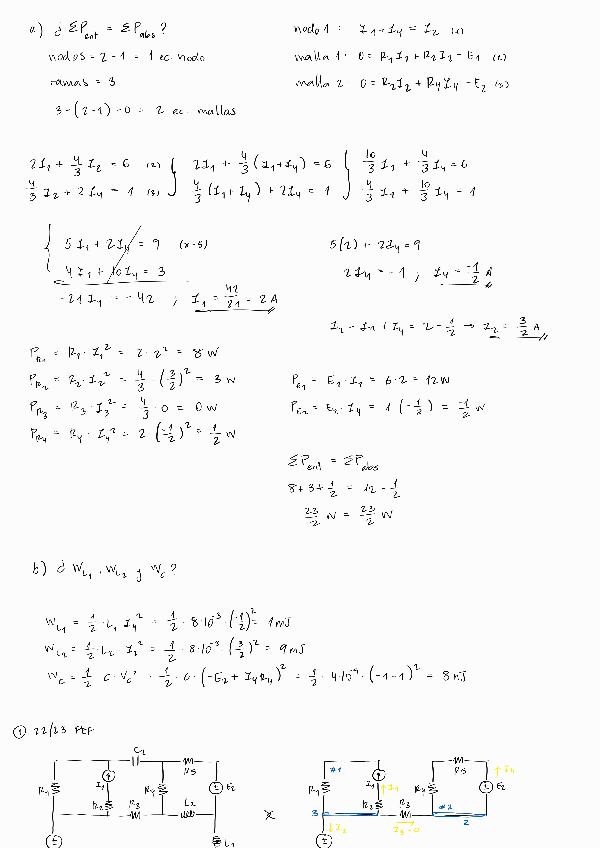 a) ¿ ΣPent = ΣPabs ?
nodos = 2 - 1 = 1 ec. nodo
ramas = 3
3 - (2-1) - 0 = 2 ec. mallas
nodo 1: I1 + I4 = I2 (1)
malla 1: 0 = R1 I1 + R2 I2 - E1 (2)
malla 2: 0 = R2 I2 + R4 I4 - E2 (3)
2I1 + 4/3 I2 = 6 (2) } 2I1 + 4/3 (I1+I4) = 6 { 10/3 I1 + 4/3 I4 = 6
4/3 I2 + 2I4 = 1 (3) } 4/3 (I1 + I4) + 2I4 = 1 { 4/3 I1 + 10/3 I4 = 1
{ 5I1 + 2I4 = 9 (x-5)
4I1 + 10I4 = 3
-21I1 = -42 , I1 = 42/21 = 2A
5(2) + 2I4 = 9
2I4 = -1 , I4 = -1/2 A
I2 = I1 + I4 = 2 - 1/2 → I2 = 3/2 A
PR1 = R1 · I1² = 2 · 2² = 8 W
PR2 = R2 · I2² = 4/3 · (3/2)² = 3 W
PR3 = R3 · I3² = 4/3 · 0 = 0 W
PR4 = R4 · I4² = 2 (-1/2)² = 1/2 W
PE1 = E1 · I1 = 6 · 2 = 12 W
PE2 = E2 · I4 = 1 (-1/2) = -1/2 W
ΣPent = ΣPabs
8 + 3 + 1/2 = 12 - 1/2
23/2 W = 23/2 W
b) ¿ WL1, WL2 y Wc ?
WL1 = 1/2 · L1 I4² = 1/2 · 8·10⁻³ · (-1/2)² = 1 mJ
WL2 = 1/2 · L2 · I2² = 1/2 · 8·10⁻³ · (3/2)² = 9 mJ
Wc = 1/2 C · Vc² = 1/2 · C · (-E2 + I4R4)² = 1/2 · 4·10⁻³ · (-1-1)² = 8 mJ
① 22/23 PEF
C2
R5
R1
I1
R2
R3
R4
L2
E2
L1
x
#1
R1
I1
R2
3
I2
R3
I3=0
R4
#2
2
R5
E2
I4